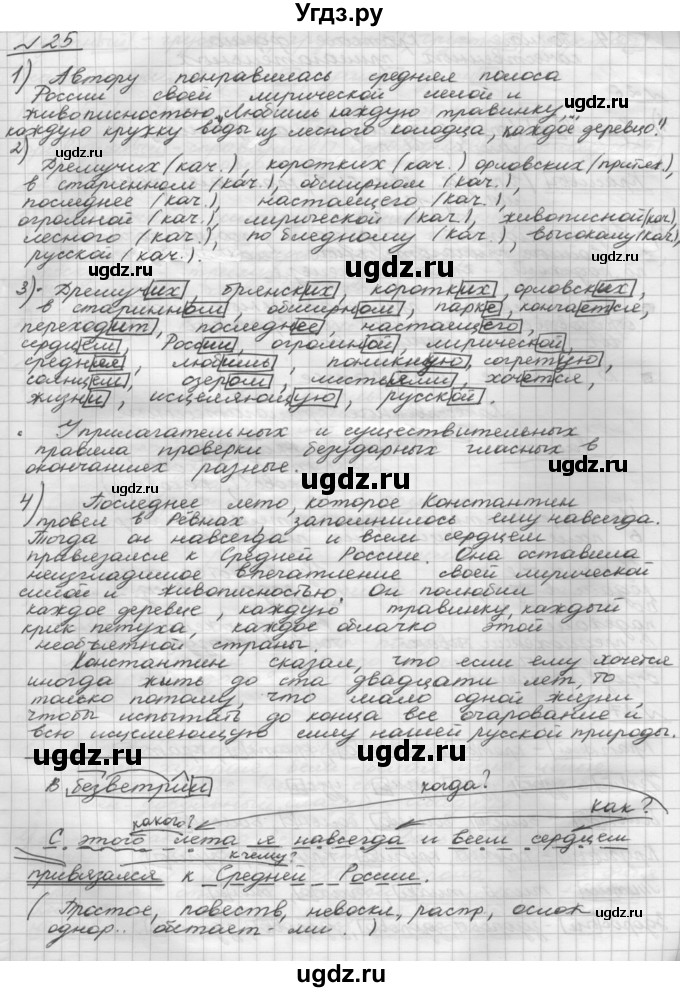 Угдз.ру
№25
1) Автору понравилась средняя полоса
России своей лирической силой и
живописностью „Любишь каждую травинку,
каждую кружку воды из лесного колодца, каждое деревцо."
2)
Дремучих (кач.), коротких (кач.) орловских (притяж.),
в старинном (кач.), обширном (кач.),
последнее (кач.), настоящего (кач.),
огромной (кач.), лирической (кач.), живописной (кач.)
лесного (кач.), по бледному (кач.), высокому (кач.),
русской (кач.).
3) Дремучих, брянских, коротких, орловских,
в старинном, обширном, парке, кончается,
переходит, последнее, настоящего,
сердцем, России, огромной, лирической,
средняя, любишь, поникшую, согретую,
солнцем, озером, листьями, хочется,
жизни, исцеляющую, русской.
У прилагательных и существительных
правила проверки безударных гласных в
окончаниях разные.
4) Последнее лето, которое Константин
провёл в Рёвнах, запомнилось ему навсегда.
Тогда он навсегда и всем сердцем
привязался к Средней России. Она оставила
неизгладимое впечатление своей лирической
силой и живописностью. Он полюбил
каждое деревце, каждую травинку, каждый
крик петуха, каждое облачко этой
необъятной страны.
Константин сказал, что если ему хочется
иногда жить до ста двадцати лет, то
только потому, что мало одной жизни,
чтобы испытать до конца все очарование и
всю исцеляющую силу нашей русской природы.
В безветрии когда?
какого? как?
С этого лета я навсегда и всем сердцем
к чему?
привязался к Средней России.
(Простое, повеств, невоскл, распр, ослож
однор. обстоят-ми.)
ugdz.ru
ugdz.ru
ugdz.ru
ugdz.ru
ugdz.ru
ugdz.ru
ugdz.ru
ugdz.ru
ugdz.ru
ugdz.ru
ugdz.ru
ugdz.ru
ugdz.ru
ugdz.ru